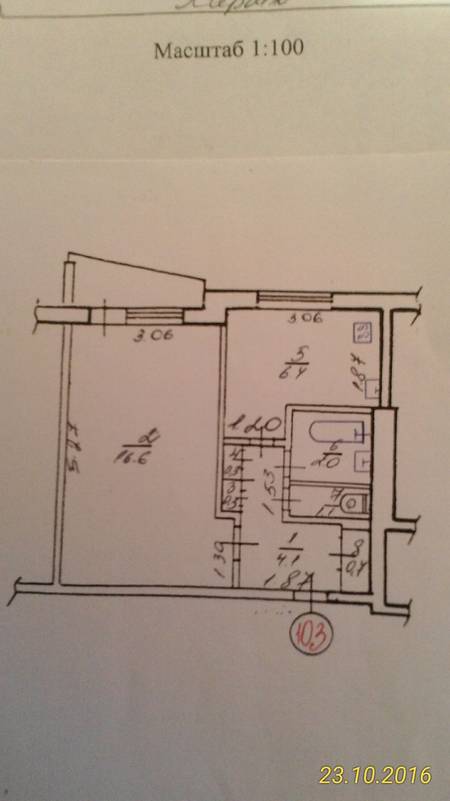 Масштаб 1:100
3.06
3.06
5
6.4
1.87
1.20
2
16.6
5.27
6
2.0
4
0.5
3
0.5
1.53
7
1.1
1
4.1
8
0.4
1.39
1.87
103
23.10.2016